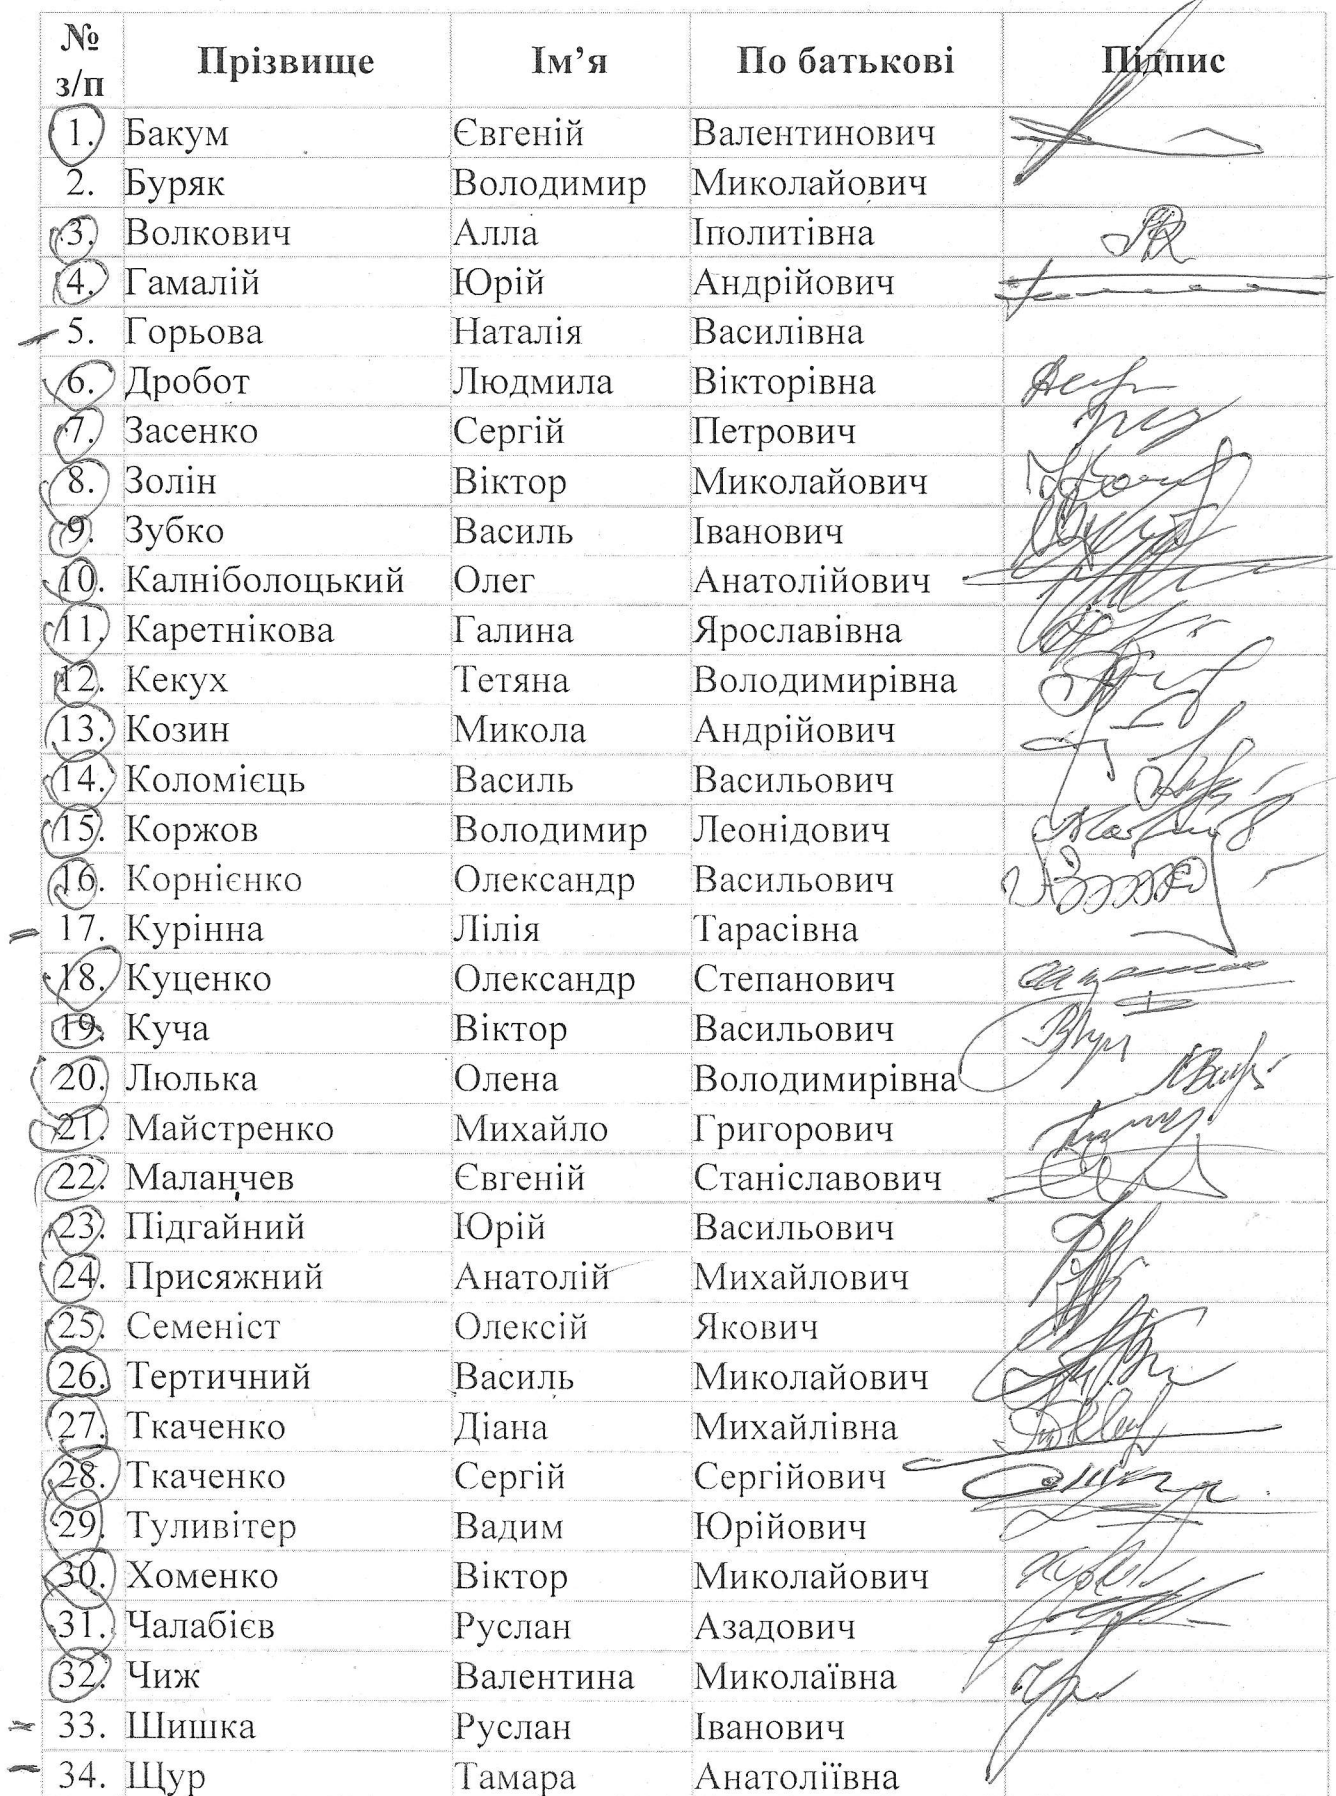 № з/п Прізвище Ім’я По батькові Підпис
1. Бакум Євгеній Валентинович
2. Буряк Володимир Миколайович
3. Волкович Алла Іполитівна
4. Гамалій Юрій Андрійович
5. Горьова Наталія Василівна
6. Дробот Людмила Вікторівна
7. Засенко Сергій Петрович
8. Золін Віктор Миколайович
9. Зубко Василь Іванович
10. Калніболоцький Олег Анатолійович
11. Каретнікова Галина Ярославівна
12. Кекух Тетяна Володимирівна
13. Козин Микола Андрійович
14. Коломієць Василь Васильович
15. Коржов Володимир Леонідович
16. Корнієнко Олександр Васильович
17. Курінна Лілія Тарасівна
18. Куценко Олександр Степанович
19. Куча Віктор Васильович
20. Люлька Олена Володимирівна
21. Майстренко Михайло Григорович
22. Маланчев Євгеній Станіславович
23. Підгайний Юрій Васильович
24. Присяжний Анатолій Михайлович
25. Семеніст Олексій Якович
26. Тертичний Василь Миколайович
27. Ткаченко Діана Михайлівна
28. Ткаченко Сергій Сергійович
29. Туливітер Вадим Юрійович
30. Хоменко Віктор Миколайович
31. Чалабієв Руслан Азадович
32. Чиж Валентина Миколаївна
33. Шишка Руслан Іванович
34. Щур Тамара Анатоліївна